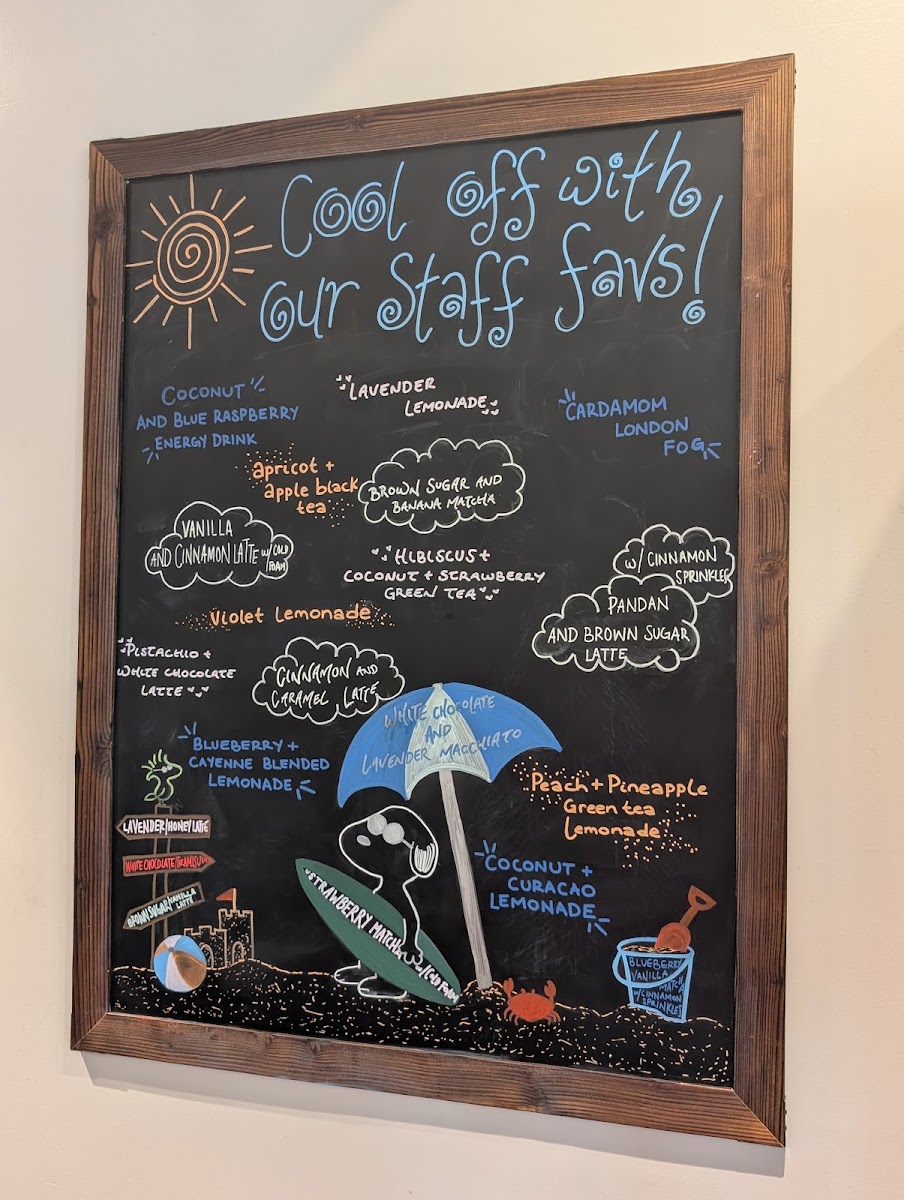 Cool off with
our staff favs!
COCONUT
AND BLUE RASPBERRY
ENERGY DRINK
LAVENDER
LEMONADE
CARDAMOM
LONDON
FOG
apricot +
apple black
tea
BROWN SUGAR AND
BANANA MATCHA
VANILLA
AND CINNAMON LATTE w/ COLD
FOAM
HIBISCUS +
COCONUT + STRAWBERRY
GREEN TEA
w/ CINNAMON
SPRINKLES
PANDAN
AND BROWN SUGAR
LATTE
Violet Lemonade
PISTACHIO +
WHITE CHOCOLATE
LATTE
CINNAMON AND
CARAMEL LATTE
WHITE CHOCOLATE
AND
LAVENDER MACCHIATO
BLUEBERRY +
CAYENNE BLENDED
LEMONADE
Peach + Pineapple
Green tea
Lemonade
LAVENDER/HONEY LATTE
WHITE CHOCOLATE TIRAMISU
BROWN SUGAR VANILLA
LATTE
STRAWBERRY MATCHA w/ COLD FOAM
COCONUT +
CURACAO
LEMONADE
BLUEBERRY
VANILLA
MATCHA
W/ CINNAMON
SPRINKLES